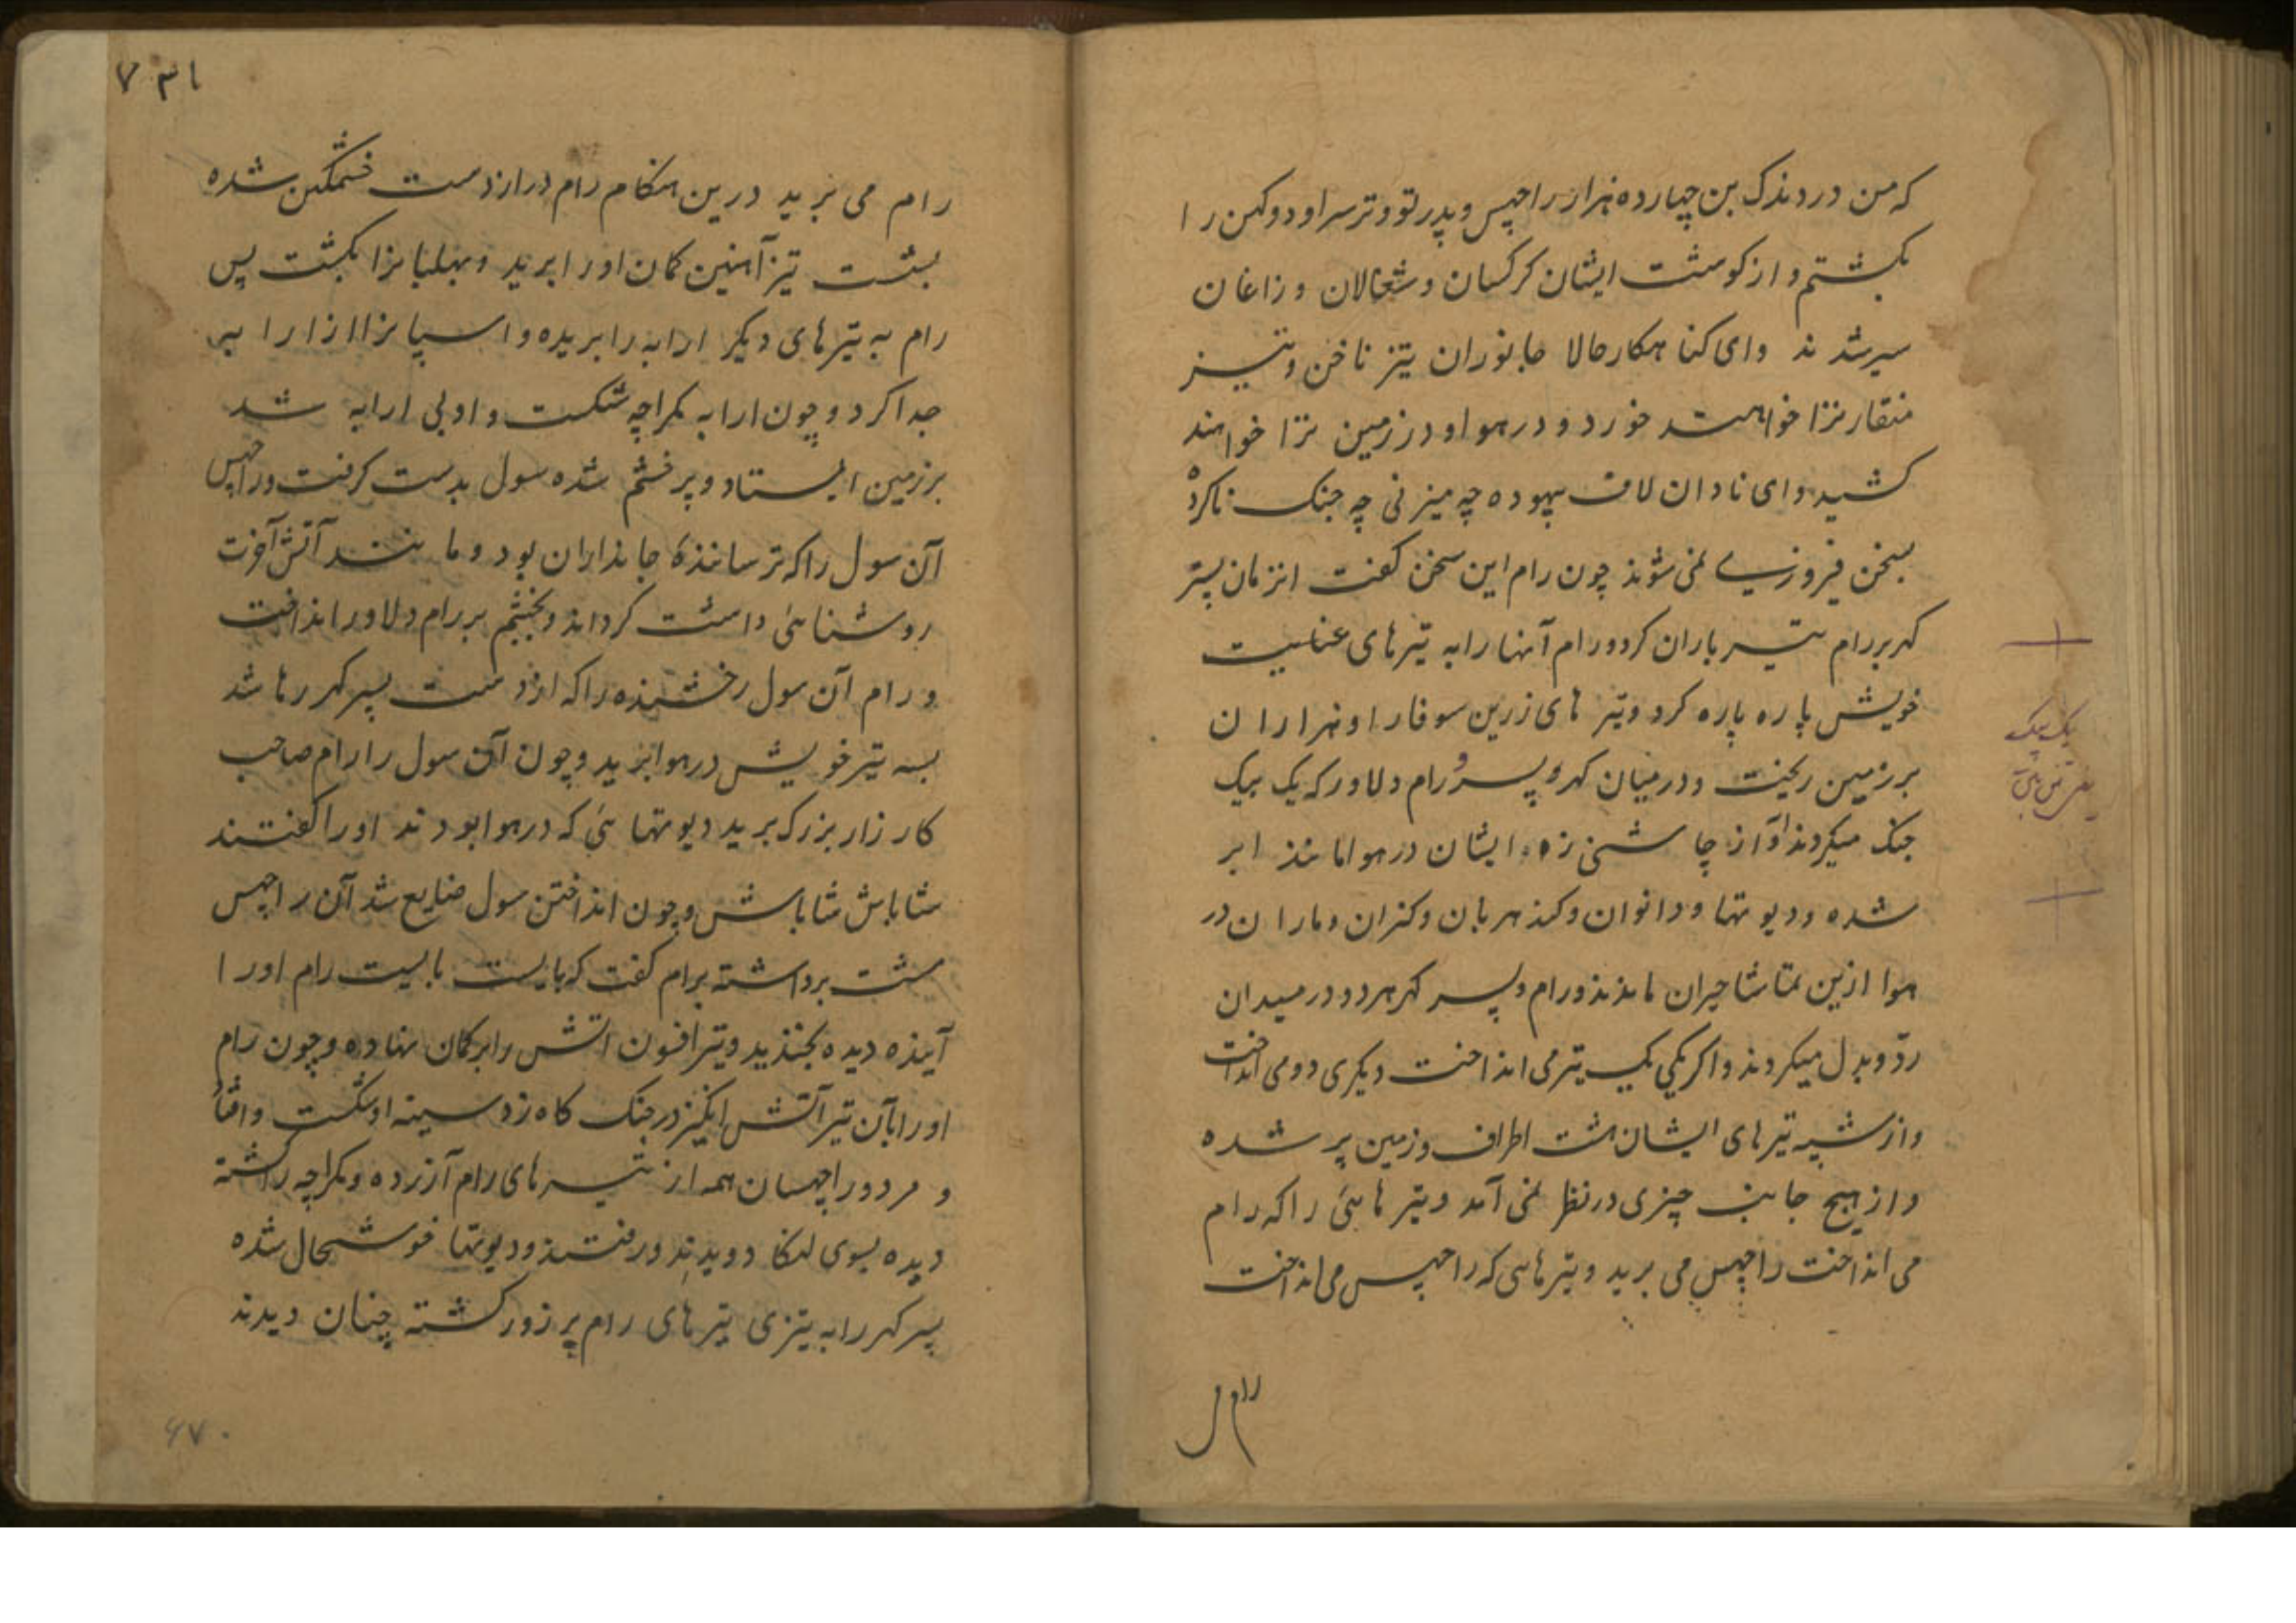 که من در دندک بن چهارده هزار راچهس و پدر تو و ترسرا و دوکهن را
بکشتم و از کوشت ایشان کرکسان و شغالان و زاغان
سیر شدند وای کناهکار حالا جانوران تیز ناخن و تیز
منقار ترا خواهند خورد و در هوا و در زمین ترا خواهند
کشید و ای نادان لاف بیهوده چه میزنی چه جنک ناکرده
بسخن فیروزی نمی شوند چون رام این سخن کفت انزمان پسر
کهر بر رام تیر باران کرد و رام آنها را به تیرهای عنایت
خویش پاره پاره کرد و تیر های زرین سوفار او هزاران
بر زمین ریخت و در میان کهر و پسر و رام دلاور که یک بیک
جنک میکردند آواز چاشنی زه ایشان در هوا مانند ابر
شده و دیوتها و دانوان و کندهربان و کنران و ماران در
هوا ازین تماشا حیران ماندند و رام و پسر کهر هر دو در میدان
رد و بدل میکردند و اکر یکی یک تیر می انداخت دیکری دو می انداخت
و از شیبه تیرهای ایشان هشت اطراف و زمین پر شده
و از هیچ جانب چیزی در نظر نمی آمد و تیر هائی را که رام
می انداخت راچهس می برید و تیرهایی که راچهس می انداخت
یک بیک
۷۳۱
رام می برید درین هنکام رام دراز دست خشمکین شده
بشست تیز آهنین کمان او را برید و بهلبانرا بکشت پس
رام به تیرهای دیکر ارابه را بریده و اسپانرا از ارابه
جدا کرد و چون ارابه مکراچه شکست و او بی ارابه شد
بر زمین ایستاد و پر خشم شده سول بدست کرفت و راچهس
آن سول را که ترسانندهٔ جانداران بود و مانند آتش آخرت
روشنائی داشت کرداند و بخشم بر رام دلاور انداخت
و رام آن سول رخشنده را که از دست پسر کهر رها شد
بسه تیر خویش در هوا برید و چون آن سول را رام صاحب
کارزار بزرک برید دیوتهائی که در هوا بودند او را کفتند
شاباش شاباش و چون انداختن سول ضایع شد آن راچهس
مشت برداشته برام کفت که بایست بایست رام او را
آینده دیده بخندید و تیر افسون اتش را بر کمان نهاده و چون رام
او را بآن تیر آتش انکیز در جنک کاه زد سینه او شکست و افتاد
و مرد و راچهسان همه از تیرهای رام آزرده و مکراچه را کشته
دیده بسوی لنکا دویدند و رفتند و دیوتها خوشحال شده
پسر کهر را به تیزی تیرهای رام پر زور کشته چنان دیدند
۶۷۰